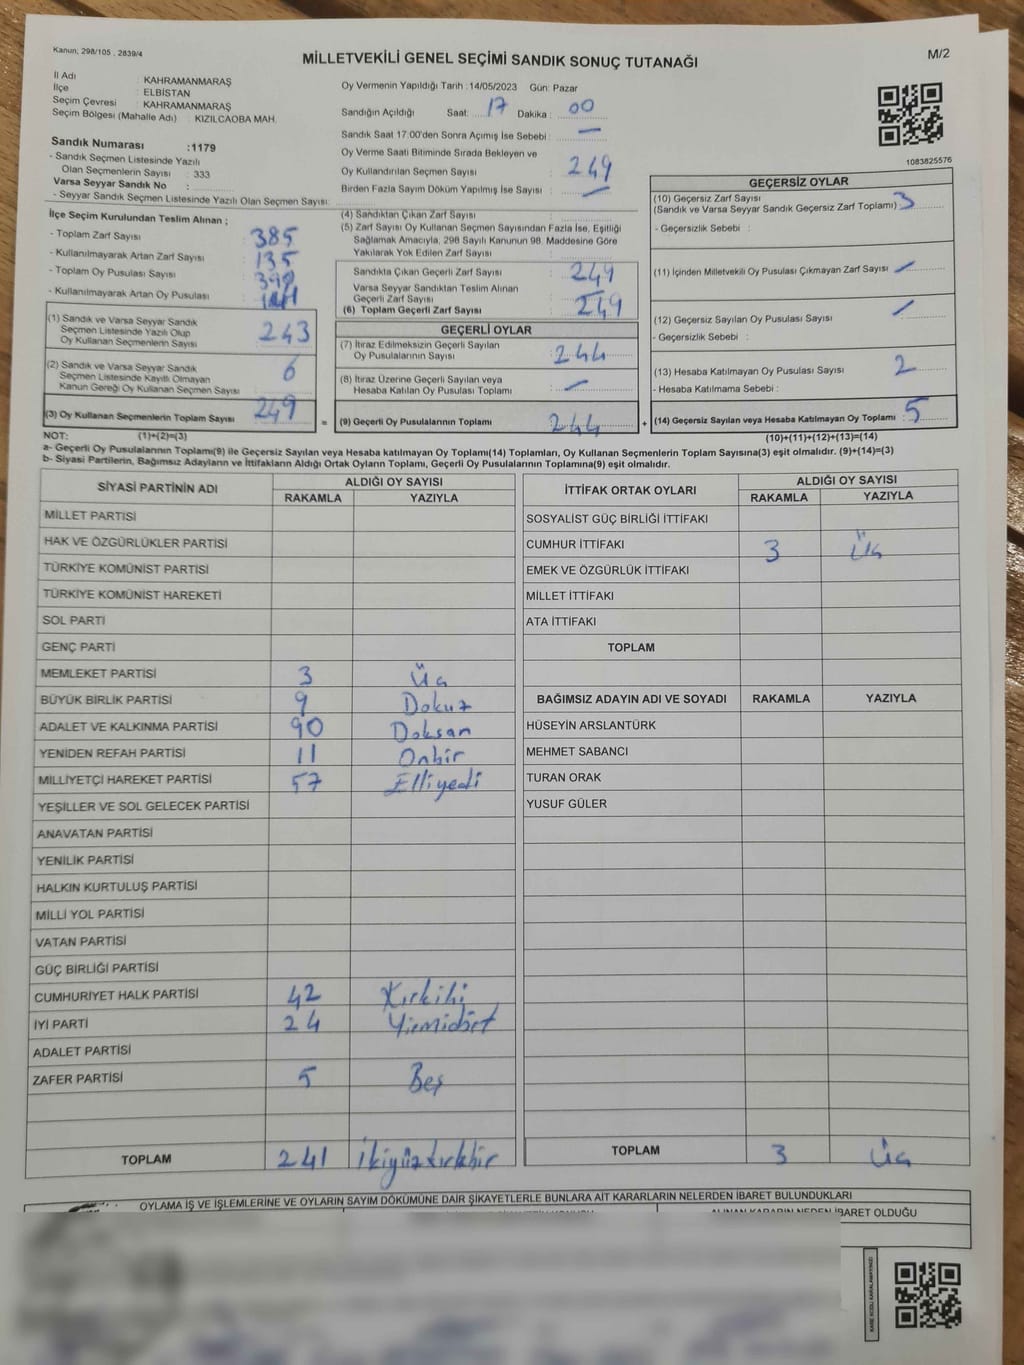 Kanun: 298/105 . 2839/4
MİLLETVEKİLİ GENEL SEÇİMİ SANDIK SONUÇ TUTANAĞI
M/2
İl Adı : KAHRAMANMARAŞ
İlçe : ELBİSTAN
Seçim Çevresi : KAHRAMANMARAŞ
Seçim Bölgesi (Mahalle Adı) : KIZILCAOBA MAH.
Sandık Numarası :1179
- Sandık Seçmen Listesinde Yazılı
Olan Seçmenlerin Sayısı : 333
Varsa Seyyar Sandık No :
- Seyyar Sandık Seçmen Listesinde Yazılı Olan Seçmen Sayısı:
Oy Vermenin Yapıldığı Tarih :14/05/2023 Gün: Pazar
Sandığın Açıldığı Saat: 17 Dakika : 00
Sandık Saat 17:00'den Sonra Açılmış İse Sebebi : —
Oy Verme Saati Bitiminde Sırada Bekleyen ve
Oy Kullandırılan Seçmen Sayısı : 249
Birden Fazla Sayım Döküm Yapılmış İse Sayısı : —
1083825576
İlçe Seçim Kurulundan Teslim Alınan ;
- Toplam Zarf Sayısı : 385
- Kullanılmayarak Artan Zarf Sayısı : 135
- Toplam Oy Pusulası Sayısı :
- Kullanılmayarak Artan Oy Pusulası :
(1) Sandık ve Varsa Seyyar Sandık
Seçmen Listesinde Yazılı Olup
Oy Kullanan Seçmenlerin Sayısı : 243
(2) Sandık ve Varsa Seyyar Sandık
Seçmen Listesinde Kayıtlı Olmayan
Kanun Gereği Oy Kullanan Seçmen Sayısı : 6
(3) Oy Kullanan Seçmenlerin Toplam Sayısı 249
(4) Sandıktan Çıkan Zarf Sayısı :
(5) Zarf Sayısı Oy Kullanan Seçmen Sayısından Fazla İse, Eşitliği
Sağlamak Amacıyla, 298 Sayılı Kanunun 98. Maddesine Göre
Yakılarak Yok Edilen Zarf Sayısı :
Sandıkta Çıkan Geçerli Zarf Sayısı : 249
Varsa Seyyar Sandıktan Teslim Alınan
Geçerli Zarf Sayısı :
(6) Toplam Geçerli Zarf Sayısı : 249
GEÇERLİ OYLAR
(7) İtiraz Edilmeksizin Geçerli Sayılan
Oy Pusulalarının Sayısı : 244
(8) İtiraz Üzerine Geçerli Sayılan veya
Hesaba Katılan Oy Pusulası Toplamı : —
= (9) Geçerli Oy Pusulalarının Toplamı : 244
GEÇERSİZ OYLAR
(10) Geçersiz Zarf Sayısı
(Sandık ve Varsa Seyyar Sandık Geçersiz Zarf Toplamı) 3
- Geçersizlik Sebebi :
(11) İçinden Milletvekili Oy Pusulası Çıkmayan Zarf Sayısı —
(12) Geçersiz Sayılan Oy Pusulası Sayısı : —
- Geçersizlik Sebebi :
(13) Hesaba Katılmayan Oy Pusulası Sayısı : 2
- Hesaba Katılmama Sebebi :
+ (14) Geçersiz Sayılan veya Hesaba Katılmayan Oy Toplamı : 5
NOT: (1)+(2)=(3)
(10)+(11)+(12)+(13)=(14)
a- Geçerli Oy Pusulalarının Toplamı(9) ile Geçersiz Sayılan veya Hesaba katılmayan Oy Toplamı(14) Toplamları, Oy Kullanan Seçmenlerin Toplam Sayısına(3) eşit olmalıdır. (9)+(14)=(3)
b- Siyasi Partilerin, Bağımsız Adayların ve İttifakların Aldığı Ortak Oyların Toplamı, Geçerli Oy Pusulalarının Toplamına(9) eşit olmalıdır.
SİYASİ PARTİNİN ADI
ALDIĞI OY SAYISI
RAKAMLA YAZIYLA
MİLLET PARTİSİ
HAK VE ÖZGÜRLÜKLER PARTİSİ
TÜRKİYE KOMÜNİST PARTİSİ
TÜRKİYE KOMÜNİST HAREKETİ
SOL PARTİ
GENÇ PARTİ
MEMLEKET PARTİSİ 3 Üç
BÜYÜK BİRLİK PARTİSİ 9 Dokuz
ADALET VE KALKINMA PARTİSİ 90 Doksan
YENİDEN REFAH PARTİSİ 11 Onbir
MİLLİYETÇİ HAREKET PARTİSİ 57 Elliyedi
YEŞİLLER VE SOL GELECEK PARTİSİ
ANAVATAN PARTİSİ
YENİLİK PARTİSİ
HALKIN KURTULUŞ PARTİSİ
MİLLİ YOL PARTİSİ
VATAN PARTİSİ
GÜÇ BİRLİĞİ PARTİSİ
CUMHURİYET HALK PARTİSİ 42 Kırkiki
İYİ PARTİ 24 Yirmidört
ADALET PARTİSİ
ZAFER PARTİSİ 5 Beş
TOPLAM 241 İkiyüzkırkbir
İTTİFAK ORTAK OYLARI
ALDIĞI OY SAYISI
RAKAMLA YAZIYLA
SOSYALİST GÜÇ BİRLİĞİ İTTİFAKI
CUMHUR İTTİFAKI 3 Üç
EMEK VE ÖZGÜRLÜK İTTİFAKI
MİLLET İTTİFAKI
ATA İTTİFAKI
TOPLAM
BAĞIMSIZ ADAYIN ADI VE SOYADI RAKAMLA YAZIYLA
HÜSEYİN ARSLANTÜRK
MEHMET SABANCI
TURAN ORAK
YUSUF GÜLER
TOPLAM 3 Üç
OYLAMA İŞ VE İŞLEMLERİNE VE OYLARIN SAYIM DÖKÜMÜNE DAİR ŞİKAYETLERLE BUNLARA AİT KARARLARIN NELERDEN İBARET BULUNDUKLARI
ALINAN KARARIN NEDEN İBARET OLDUĞU
KARE KODU KARALAMAYINIZ!